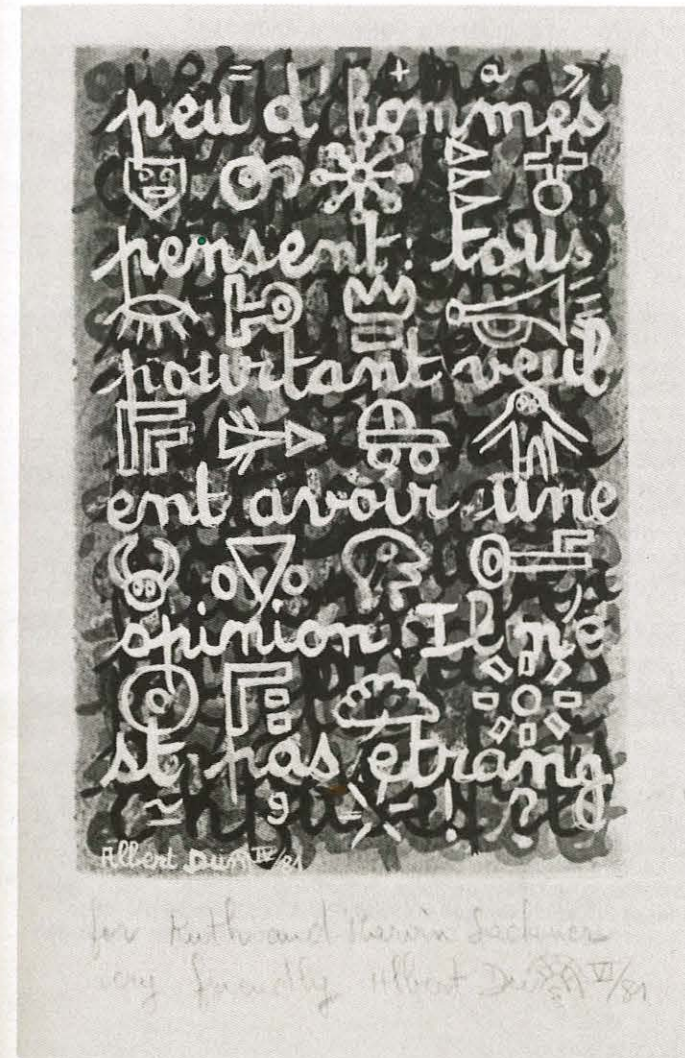 = + a
peu d'hommes
pensent: tous
pourtant veul
ent avoir une
opinion. Il n'e
st pas étrang
~ 9 = × - ! ?
Albert Dum IV/81
for Ruth and Marvin Sackner
very friendly Albert VI/81